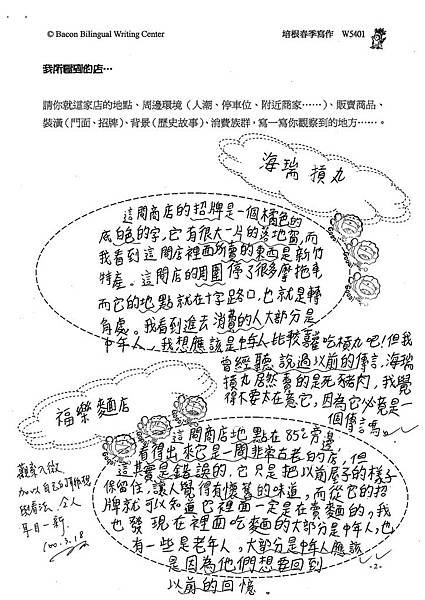 © Bacon Bilingual Writing Center
培根春季寫作 W5401
我所看到的店…
請你就這家店的地點、周邊環境（人潮、停車位、附近商家……）、販賣商品、
裝潢（門面、招牌）、背景（歷史故事）、消費族群，寫一寫你觀察到的地方……。
海瑞摃丸
這間商店的招牌是一個橘色的
底白色的字，它有很大一片的落地窗，而
我看到這間店裡面所賣的東西是新竹
特產。這間店的周圍停了很多摩拖車
而它的地點就在十字路口，也就是轉
角處。我看到進去消費的人大部分是
中年人，我想應該是中年人比較喜歡吃摃丸吧！但我
曾經聽說過以前的傳言，海瑞
摃丸居然賣的是死豬肉，我覺
得不要太在意它，因為它必竟是一
個傳言嗎。
福樂麵店
這間商店地點在85℃旁邊
看得出來它是一間非常古老的店，但
這其實是錯誤的，它只是把以前屋子的樣子
保留住，讓人覺得有懷舊的味道，而從它的招
牌就可以知道它裡面一定是在賣麵的，我
也發現在裡面吃麵的大部分是中年人，也
有一些是老年人，大部分是中年人應該
是因為他們想要回到
以前的回憶。
觀察入微
加以自己的
與看法，令人
耳目一新。
100.3.18
-2-